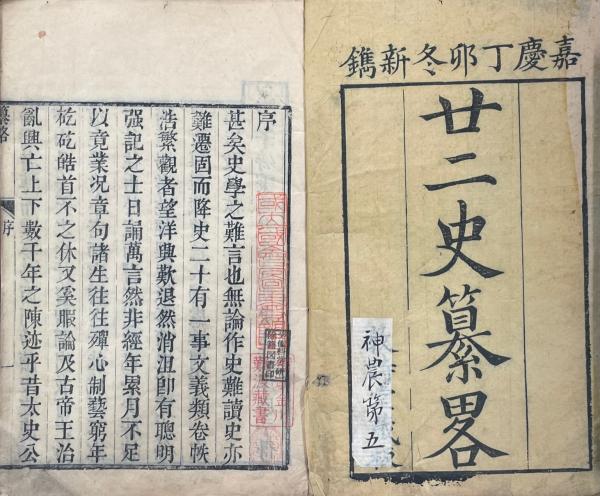 嘉慶丁卯冬新鐫
廿二史纂畧
神農第五
序
甚矣史學之難言也無論作史難讀史亦
難遷固而降史二十有一事文義類卷帙
浩繁觀者望洋興歎退然消沮卽有聰明
强記之士日誦萬言然非經年累月不足
以竟業况章句諸生往往殫心制藝窮年
矻矻皓首不之休又奚暇論及古帝王治
亂興亡上下數千年之陳迹乎昔太史公
纂畧
序
藏書